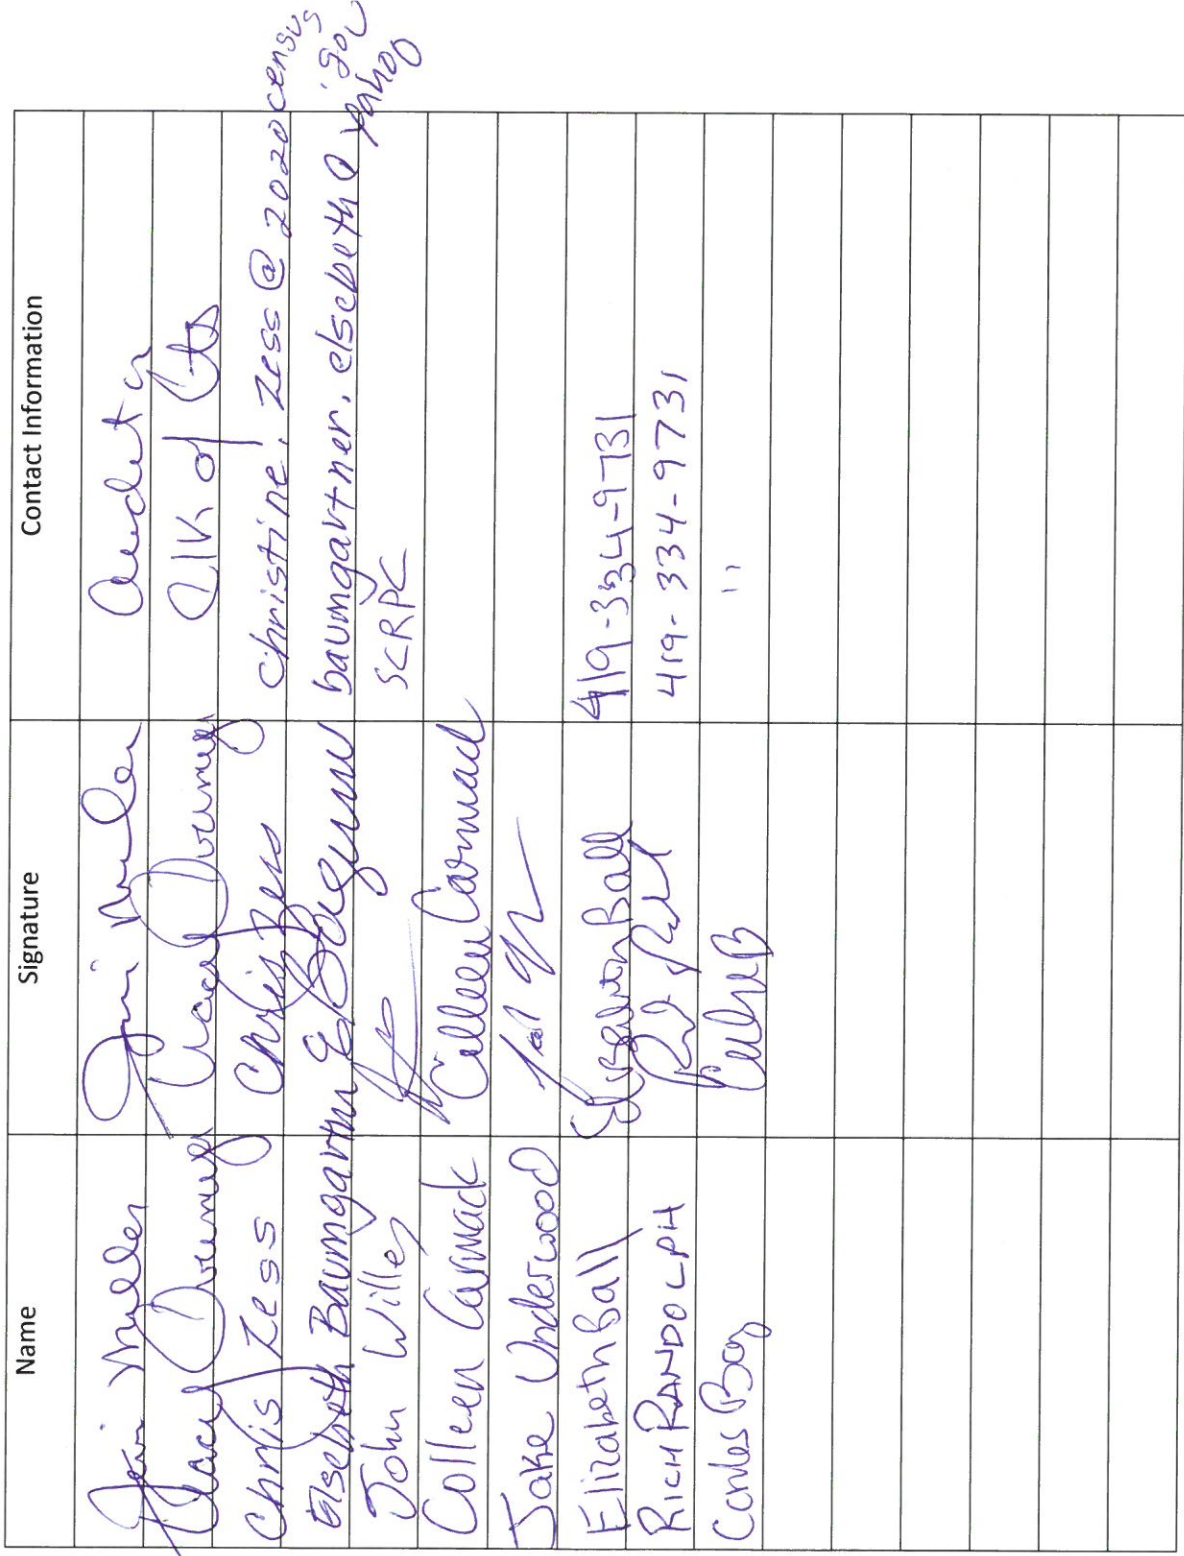 Name Signature Contact Information
Jerri Miller Jerri Miller Auditor
Tracy Overmyer Tracy Overmyer Clk of Cts
Chris Zess Chris Zess christine.zess@2020census.gov
Elsebeth Baumgartner baumgartner.elsebeth@yahoo
John Willey SCRPC
Colleen Carmack Colleen Carmack
Jake Underwood
Elizabeth Ball Elizabeth Ball 419-334-9731
RICH RANDOLPH 419-334-9731
"